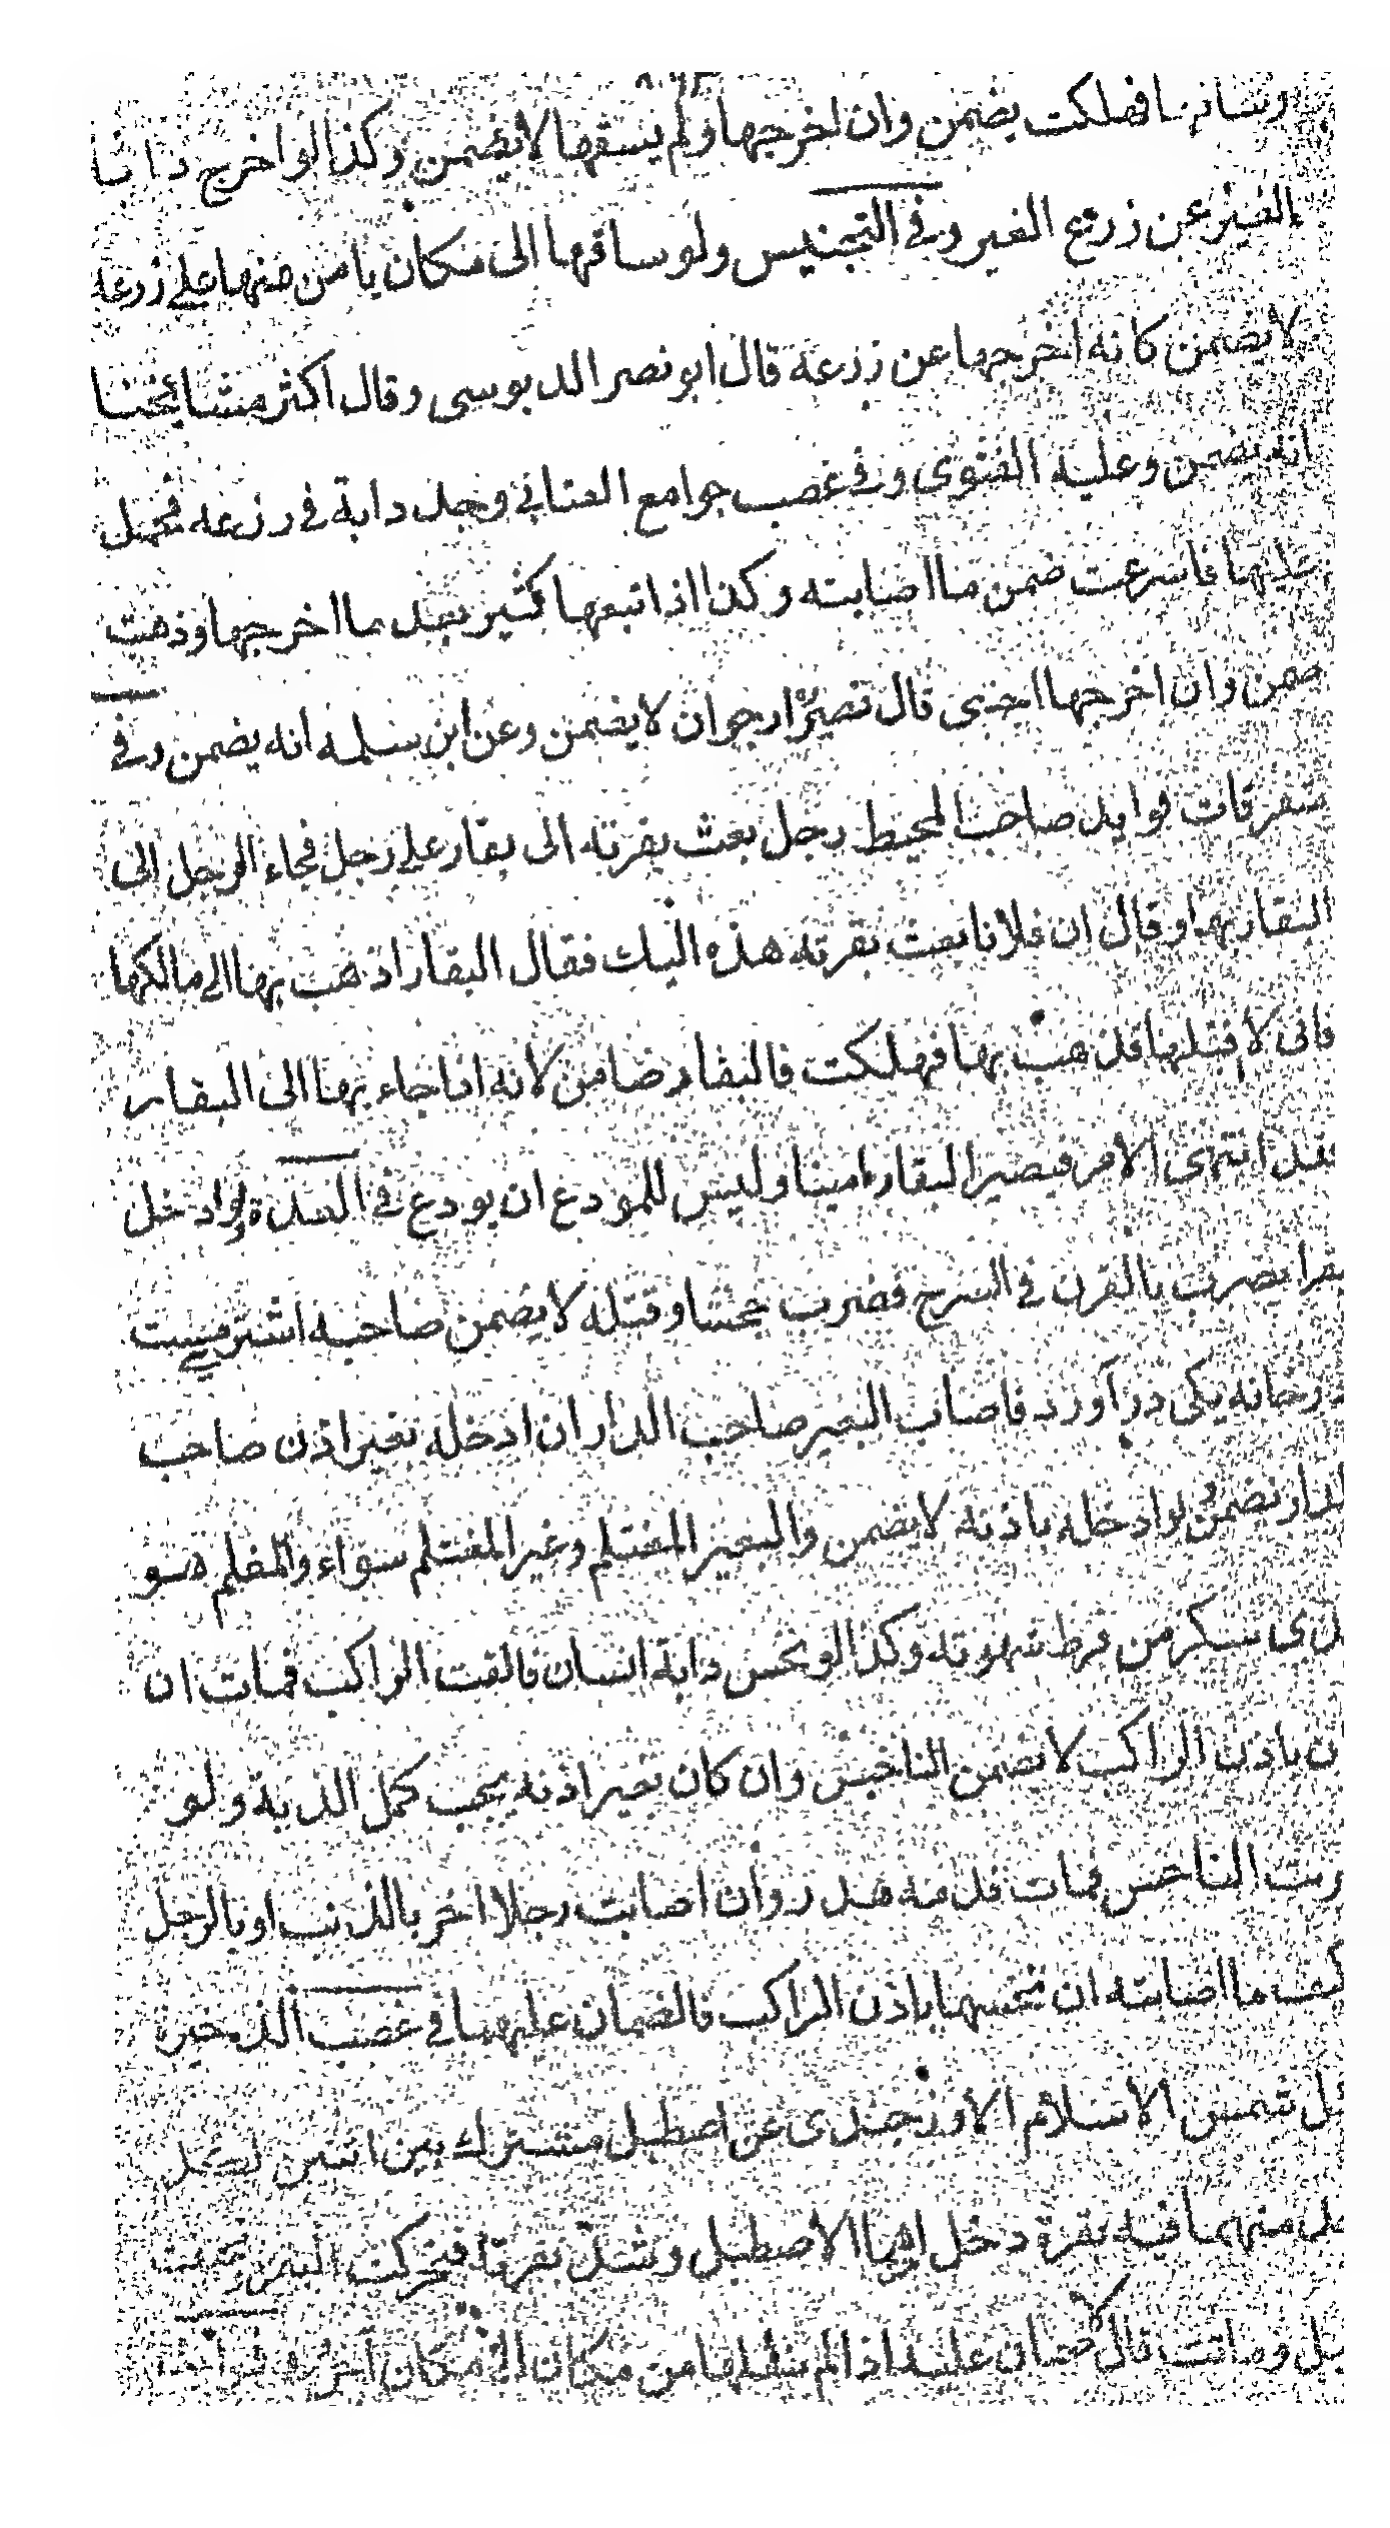 وساقها فهلكت يضمن وان اخرجها ولم يسقها لا يضمن وكذا لو اخرج دابة
الغير عن زرع الغير وفي التجنيس ولو ساقها الى مكان يامن منها على زرعه
لا يضمن كانه اخرجها عن زرعه قال ابو نصر الدبوسى وقال اكثر مشائخنا
انه يضمن وعليه الفتوى وفي غصب جوامع العتابي وجد دابة في زرعه فحمل
عليها فاسرعت ضمن ما اصابته وكذا اذا تبعها كثير بعد ما اخرجها وذهبت
ضمن وان اخرجها اجنبى قال نصير ارجوان لا يضمن وعن ابن سلمه انه يضمن وفي
متفرقات فوايد صاحب المحيط رجل بعث بقرته الى بقار على رجل فجاء الرجل الى
البقار بها وقال ان فلانا بعث بقرته هذه اليك فقال البقار اذهب بها الى مالكها
فانى لا اقبلها فذهب بها فهلكت فالبقار ضامن لانه اذا جاء بها الى البقار
فقد انتهى الامر فيصير البقار امينا وليس للمودع ان يودع في العدة ولو ادخل
بقرا يضرب بالقرن في السرح فضرب جحشا وقتله لا يضمن صاحبه اشتر مست
در خانه يكى در آورد فاصاب البعير صاحب الدار ان ادخله بغير اذن صاحب
الدار يضمن ولو ادخله باذنه لا يضمن والبعير المغتلم وغير المغتلم سواء والمغتلم هو
الذى سكر من فرط شهوته وكذا لو نخس دابة انسان فالقت الراكب فمات ان
كان باذن الراكب لا يضمن الناخس وان كان بغير اذنه يجب كمل الدية ولو
ضربت الناخس فمات فدمه هدر وان اصابت رجلا اخر بالذنب او بالرجل
كيف ما اصابته ان نخسها باذن الراكب فالضمان عليهما في غصب الذخيرة
سئل شمس الاسلام الاوزجندى عن اصطبل مشترك بين اثنين لكل
واحد منهما فيه بقرة دخل احدهما الاصطبل وشد بقرته فتحركت البقرة
الحبل وماتت قال لا ضمان عليه اذا لم ينقلها من مكان الى مكان اخر